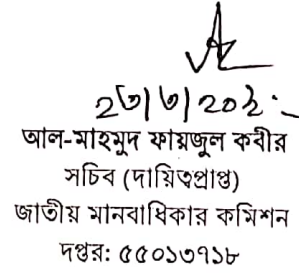 আল-মাহমুদ ফায়জুল কবীর
সচিব (দায়িত্বপ্রাপ্ত)
জাতীয় মানবাধিকার কমিশন
দপ্তর: ৫৫০১৩৭১৮